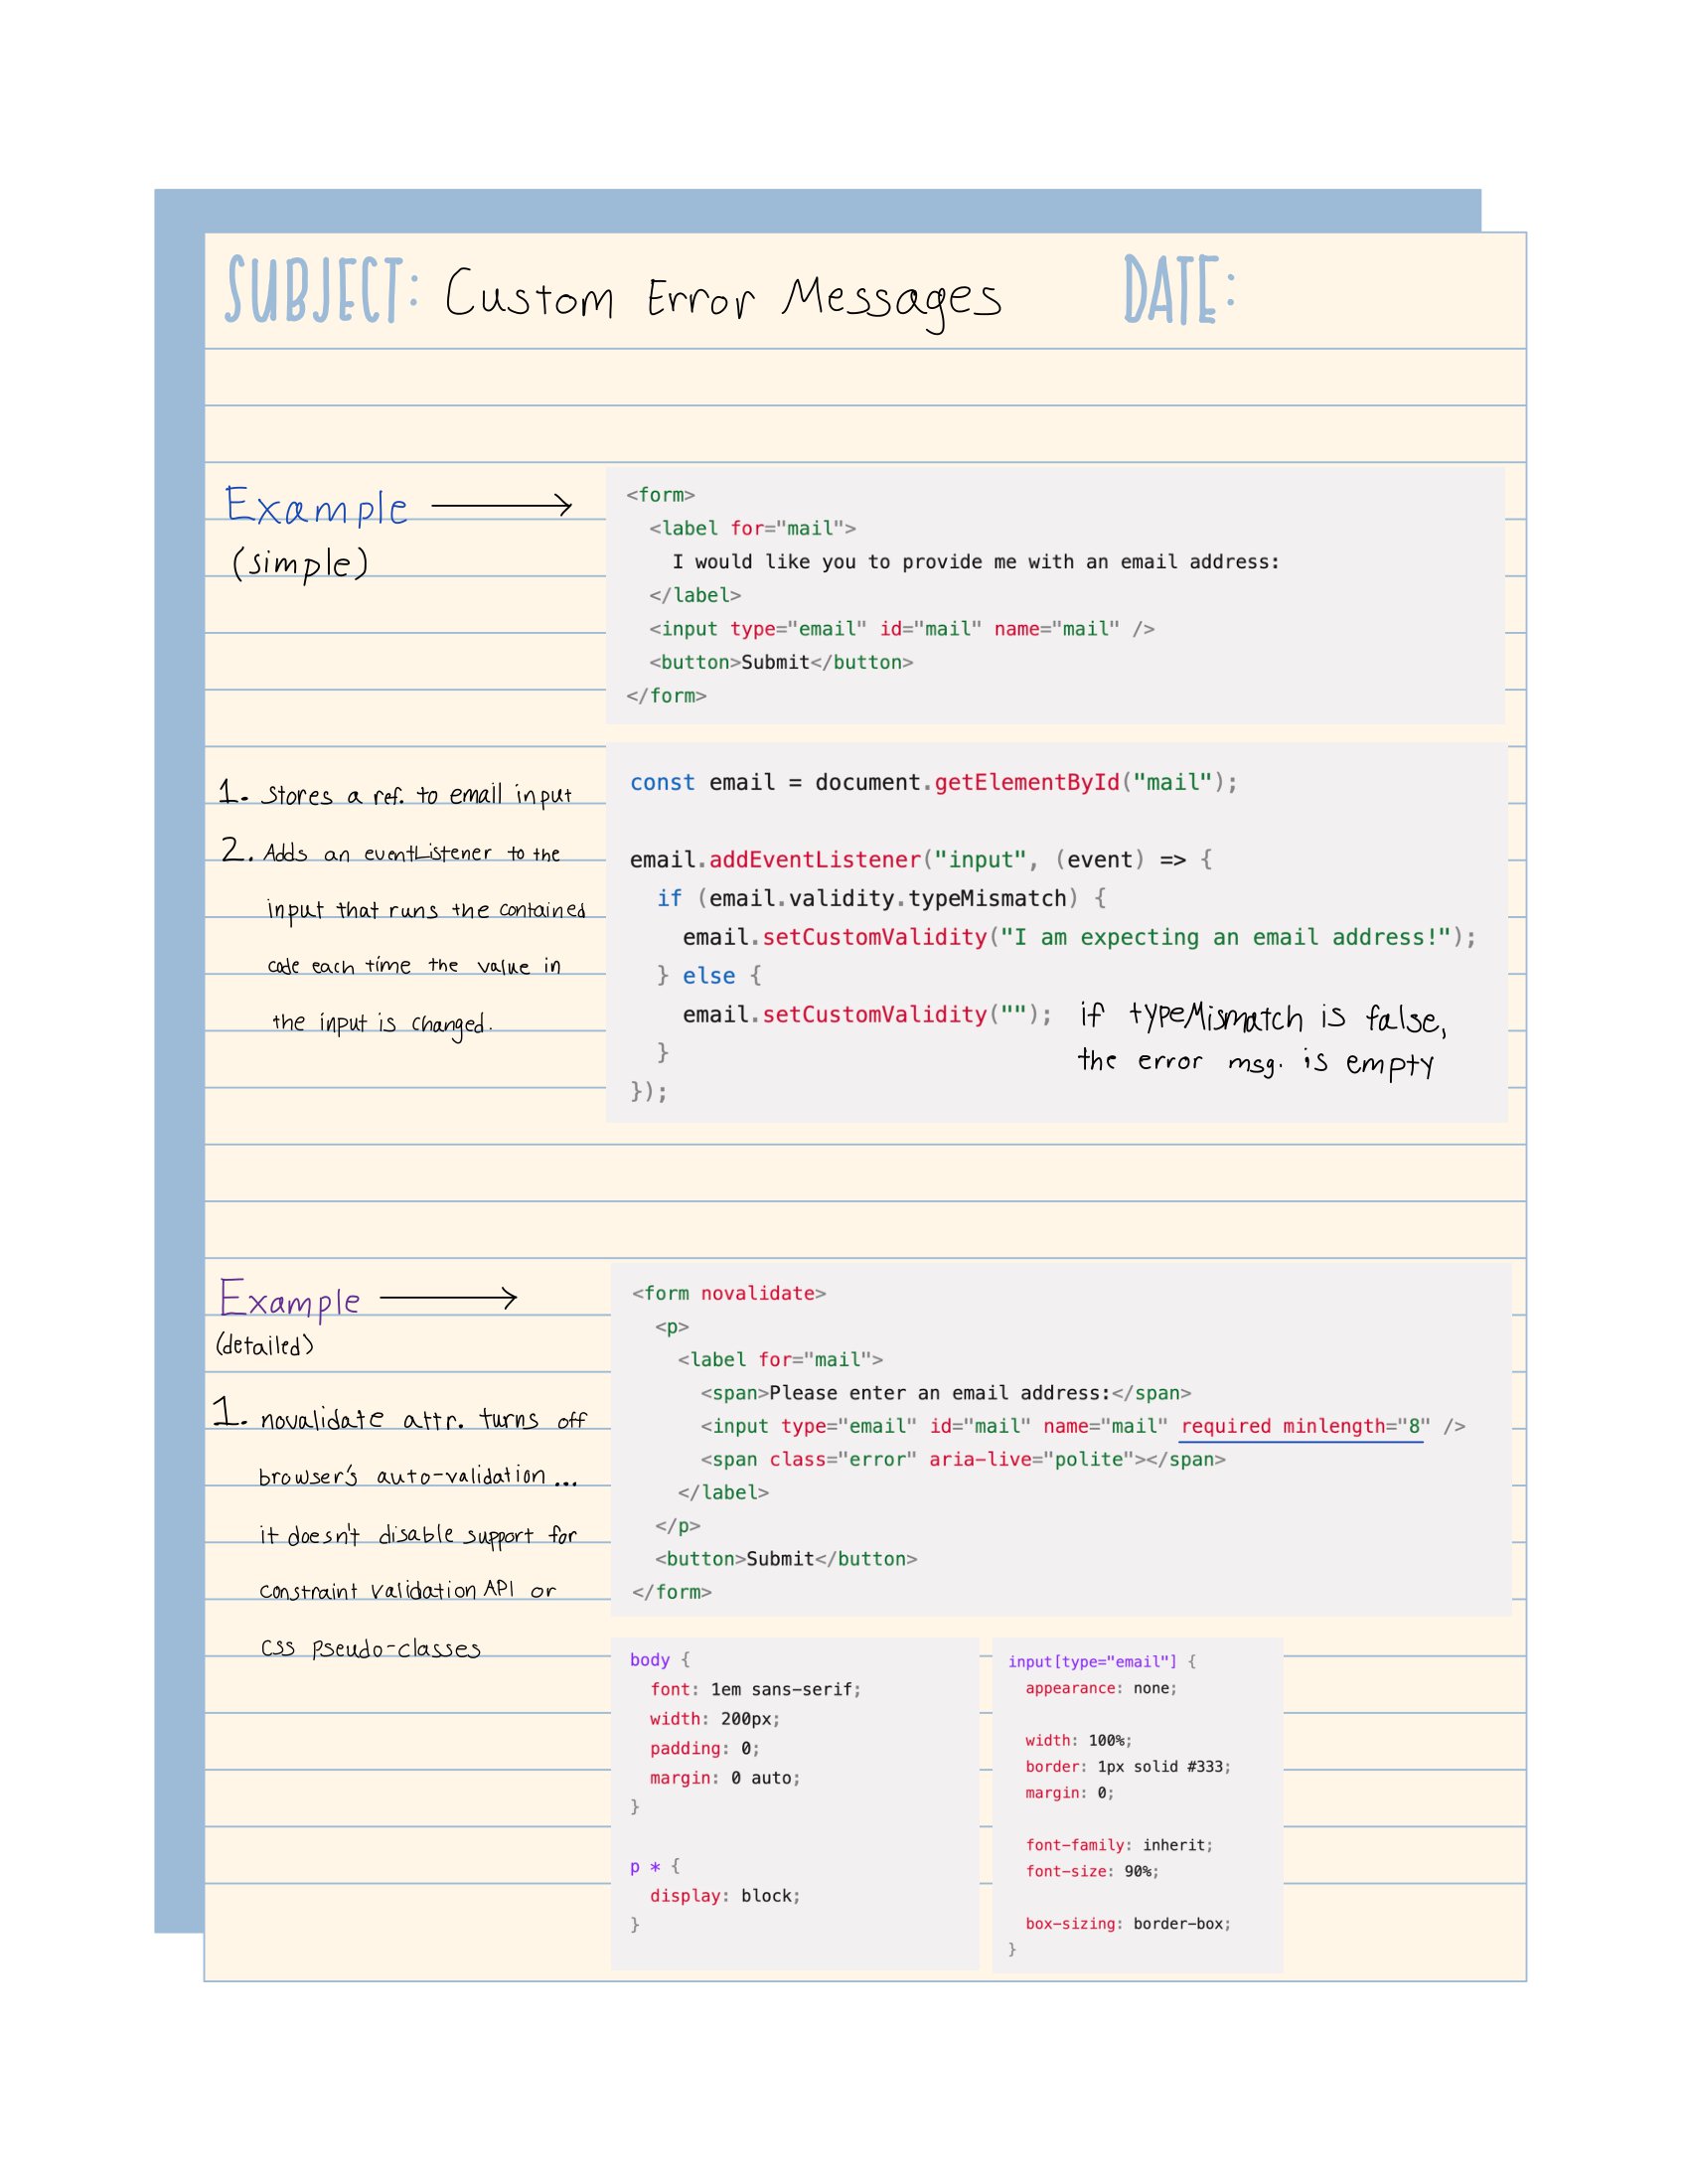 SUBJECT: Custom Error Messages DATE:
Example
(simple)
<form>
<label for="mail">
I would like you to provide me with an email address:
</label>
<input type="email" id="mail" name="mail" />
<button>Submit</button>
</form>
1. Stores a ref. to email input
2. Adds an eventListener to the
input that runs the contained
code each time the value in
the input is changed.
const email = document.getElementById("mail");
email.addEventListener("input", (event) => {
if (email.validity.typeMismatch) {
email.setCustomValidity("I am expecting an email address!");
} else {
email.setCustomValidity("");
}
});
if typeMismatch is false,
the error msg. is empty
Example
(detailed)
1. novalidate attr. turns off
browser's auto-validation...
it doesn't disable support for
constraint validation API or
CSS pseudo-classes
<form novalidate>
<p>
<label for="mail">
<span>Please enter an email address:</span>
<input type="email" id="mail" name="mail" required minlength="8" />
<span class="error" aria-live="polite"></span>
</label>
</p>
<button>Submit</button>
</form>
body {
font: 1em sans-serif;
width: 200px;
padding: 0;
margin: 0 auto;
}
p * {
display: block;
}
input[type="email"] {
appearance: none;
width: 100%;
border: 1px solid #333;
margin: 0;
font-family: inherit;
font-size: 90%;
box-sizing: border-box;
}